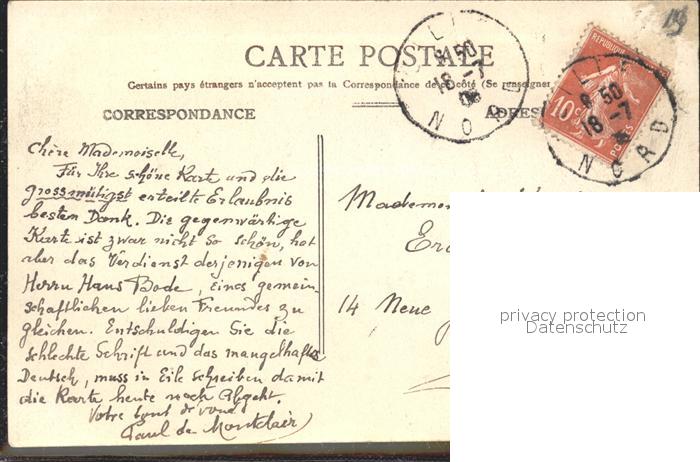 CARTE POSTALE
Certains pays étrangers n'acceptent pas la Correspondance de ce côté (Se renseigner
CORRESPONDANCE
ADRES
Chère Mademoiselle,
Für Ihre schöne Karte und die
grossmütigst erteilte Erlaubnis
besten Dank. Die gegenwärtige
Karte ist zwar nicht so schön, hat
aber das Verdienst derjenigen von
Herrn Hans Bode, eines gemein-
schaftlichen lieben Freundes zu
gleichen. Entschuldigen Sie die
schlechte Schrift und das mangelhafte
Deutsch, muss in Eile schreiben damit
die Karte heute noch abgeht.
Votre tout dévoué
Paul de Montclair
Mademo
Er
14 Neue
LILLE
8 50
18 -7
NORD
LILLE
8 50
18 -7
NORD
REPUBLIQUE
10c
POSTES
privacy protection
Datenschutz